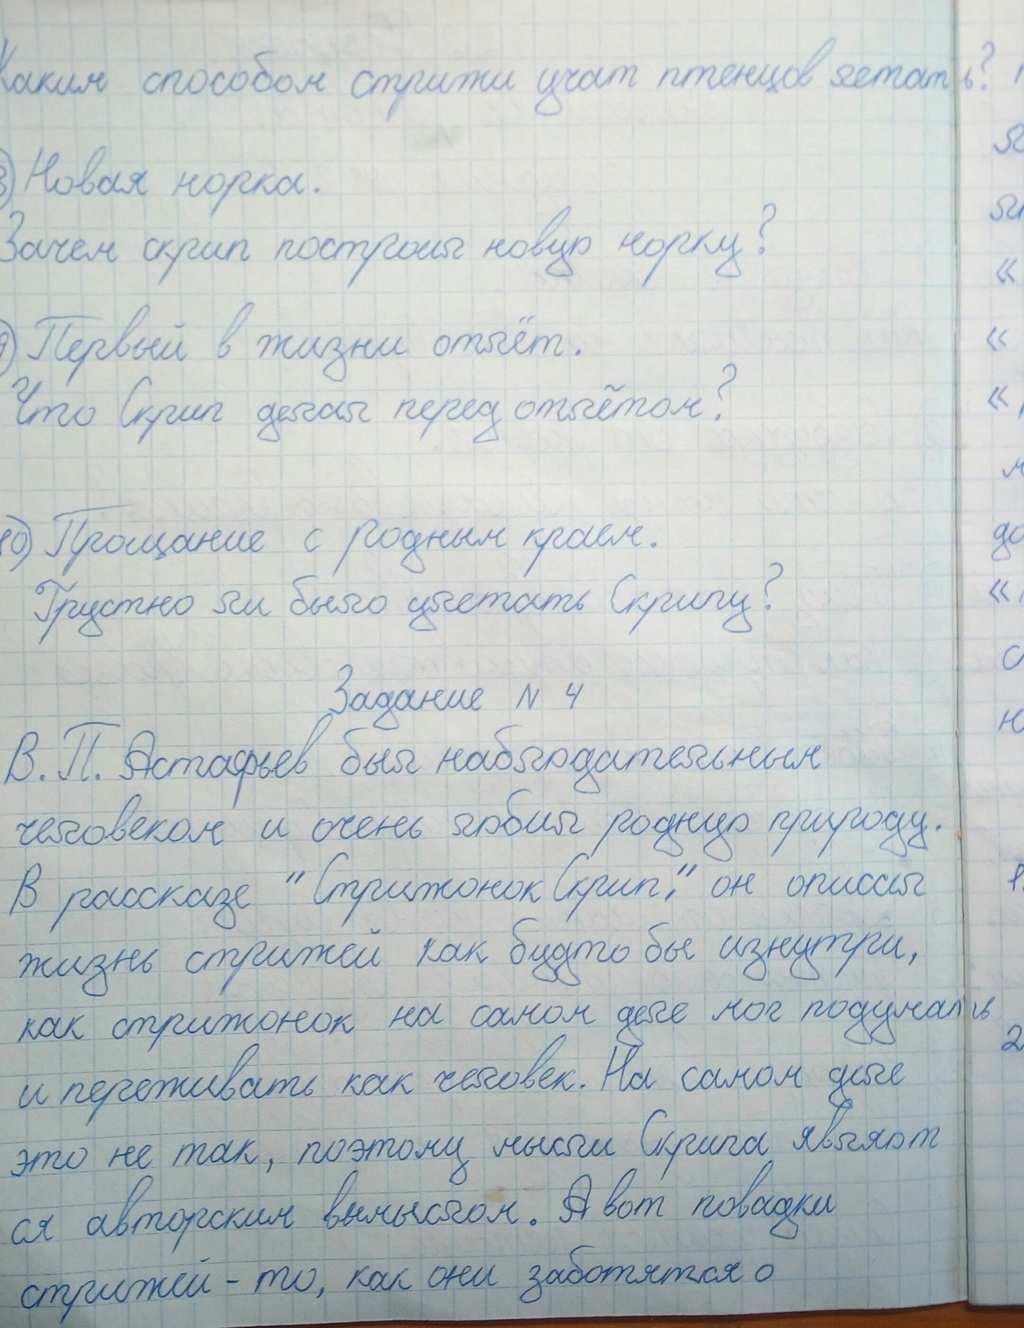 Каким способом стрижи учат птенцов летать?
8) Новая норка.
Зачем скрип построил новую норку?
9) Первый в жизни отлёт.
Что Скрип делал перед отлётом?
10) Прощание с родным краем.
Грустно ли было улетать Скрипу?
Задание N 4
В. П. Астафьев был наблюдательным
человеком и очень любил родную природу.
В рассказе "Стрижонок Скрип," он описал
жизнь стрижей как будто бы изнутри,
как стрижонок на самом деле мог подумать
и переживать как человек. На самом деле
это не так, поэтому мысли Скрипа являют
ся авторским вымыслом. А вот повадки
стрижей - то, как они заботятся о